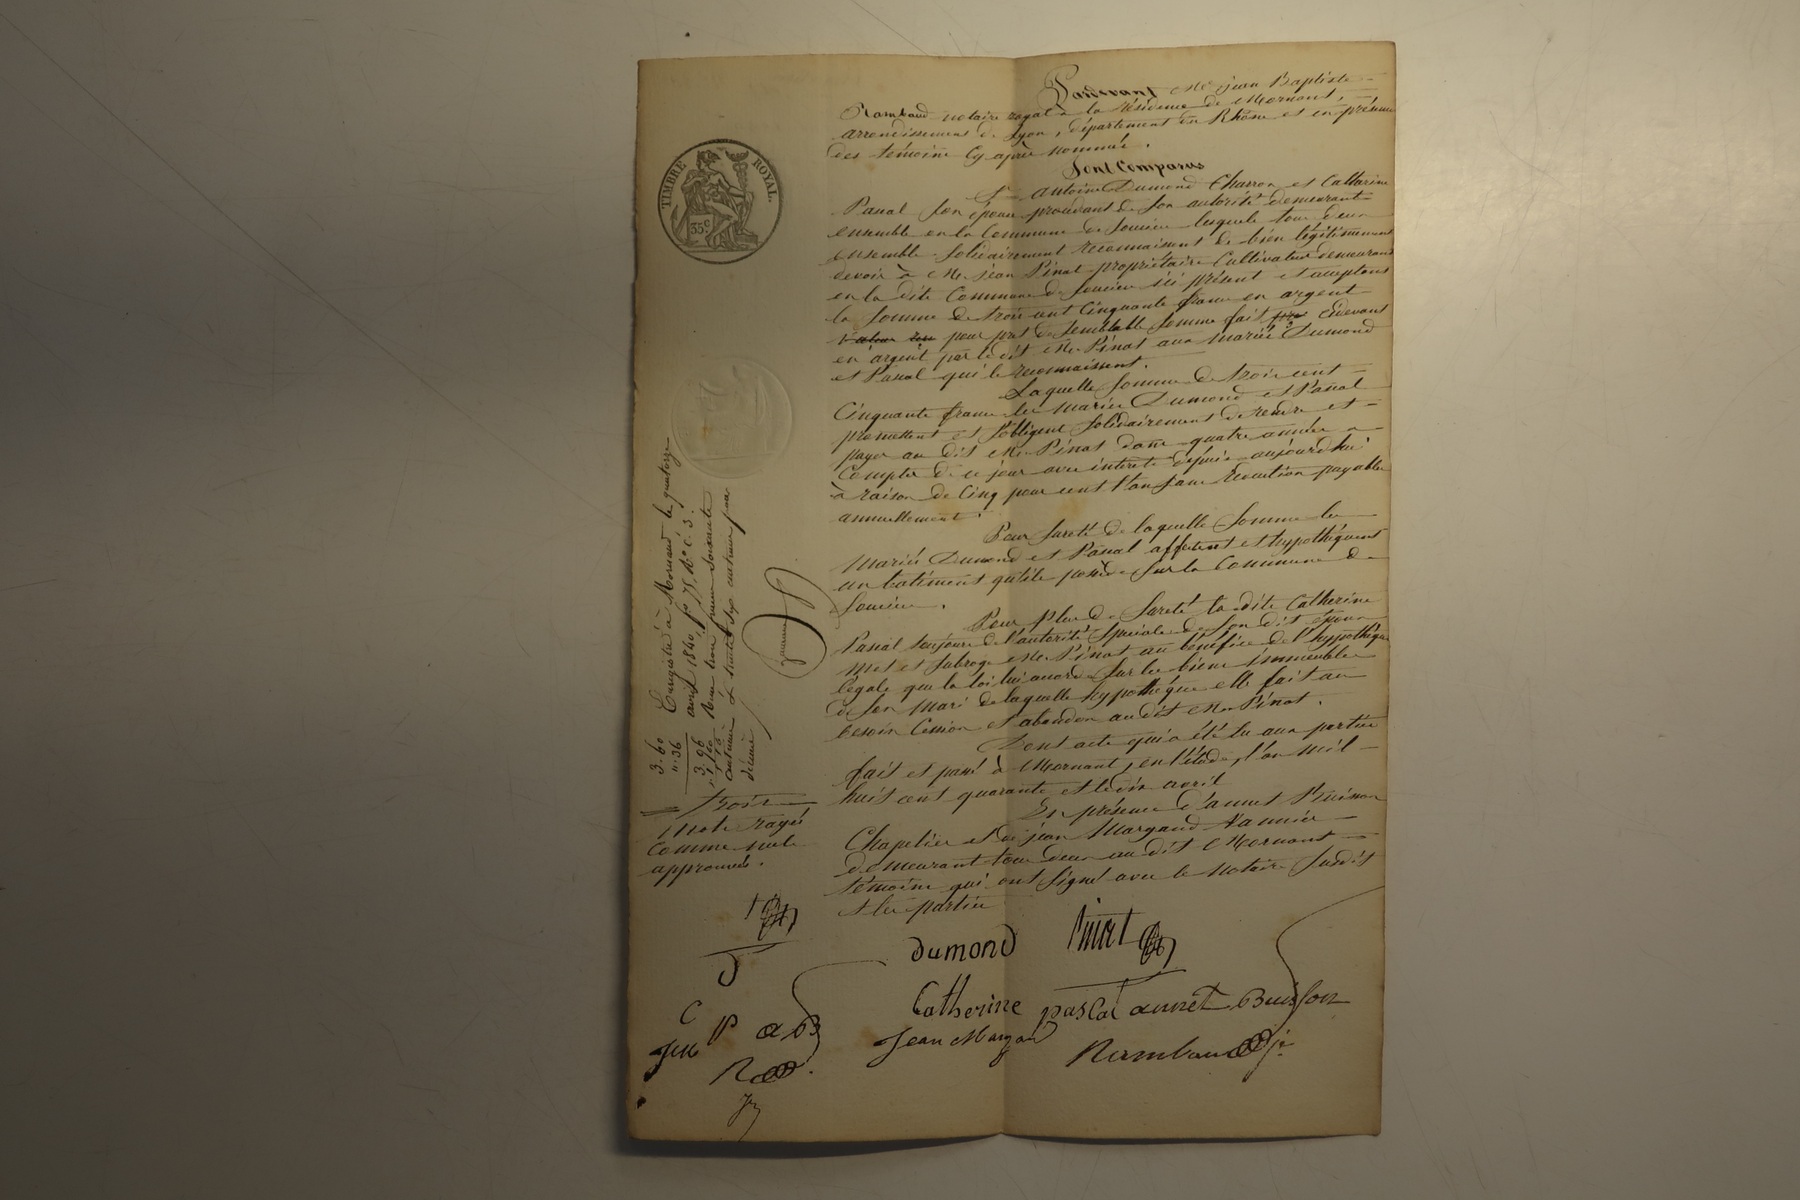 Pardevant Me jean Baptiste
Rambaud notaire royal à la résidence de Mornant,
arrondissement de Lyon, département du Rhône et en présence
des témoins cy après nommés.
Sont Comparus
Sr antoine Dumond Charron et Catherine
Pascal son épouse procédant de son autorité demeurant
ensemble en la Commune de Soucieu lesquels tous deux
ensemble solidairement reconnaissent de bien légitimement
devoir à Mr jean Pinat propriétaire Cultivateur demeurant
en la dite Commune de Soucieu ici présent et acceptant
la somme de trois cent Cinquante francs en argent
pour prêt de semblable somme fait cidevant
en argent par le dit Mr Pinat aux mariés Dumond
et Pascal qui le reconnaissent.
Laquelle somme de trois cent
Cinquante francs les mariés Dumond et Pascal
promettent et s'obligent solidairement de rendre et
payer au dit Mr Pinat dans quatre années a
Compter de ce jour avec intérêts depuis aujourd'hui
à raison de Cinq pour cent l'an sans retention payable
annuellement.
Pour sureté de laquelle somme les
Mariés Dumond et Pascal affectent et hypothéquent
un batiment qu'ils possède sur la Commune de
Soucieu.
Pour plus de Sureté la dite Catherine
Pascal toujours de l'autorité spéciale de son dit époux
met et subroge Mr Pinat au bénéfice de l'hypothèque
légale que la loi lui accorde sur les biens immeubles
de son mari de laquelle hypothéque elle fait au
besoin Cession et abandon au dit Mr Pinat.
Dont acte qui a été lu aux parties
fait et passé à Mornant, en l'étude, l'an mil
huit cent quarante et le dix avril
En présence d'annet Buisson
Chapelier et de jean Margand Vannier
demeurant tous deux au dit Mornant
témoins qui ont signé avec le notaire susdit
et les parties
dumond
Pinat
Catherine pascal
annet Buisson
Jean Margand
Rambaud
TIMBRE ROYAL.
35 c
Enregistré à Mornant le quatorze
avril 1840 fo 75, Ro C. 3.
Reçu trois francs soixante
décime
3.60
"36
3.96
trois
mots rayés
Comme nuls
approuvés.
C P a B